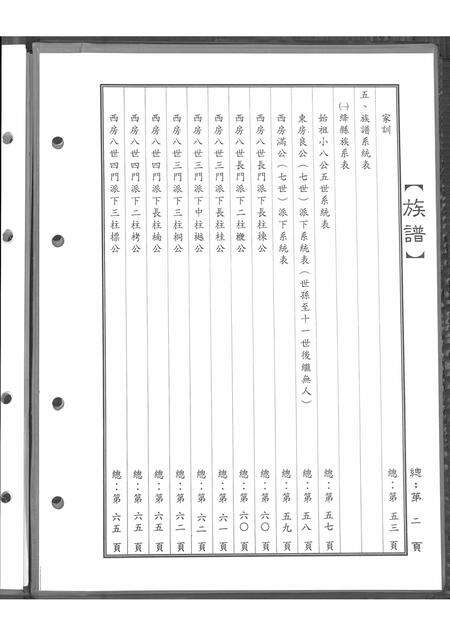 【族譜】
總：第 二 頁
家訓 總：第 五三 頁
五、族譜系統表
㈠絳縣族系表
始祖小八公五世系統表 總：第 五七 頁
東房良公（七世）派下系統表（世孫至十一世後繼無人） 總：第 五八 頁
西房滿公（七世）派下系統表 總：第 五九 頁
西房八世長門派下長柱棟公 總：第 六〇 頁
西房八世長門派下二柱概公 總：第 六〇 頁
西房八世三門派下長柱桂公 總：第 六一 頁
西房八世三門派下中柱樾公 總：第 六二 頁
西房八世三門派下三柱桐公 總：第 六二 頁
西房八世四門派下長柱公 總：第 六五 頁
西房八世四門派下二柱栲公 總：第 六五 頁
西房八世四門派下三柱標公 總：第 六五 頁